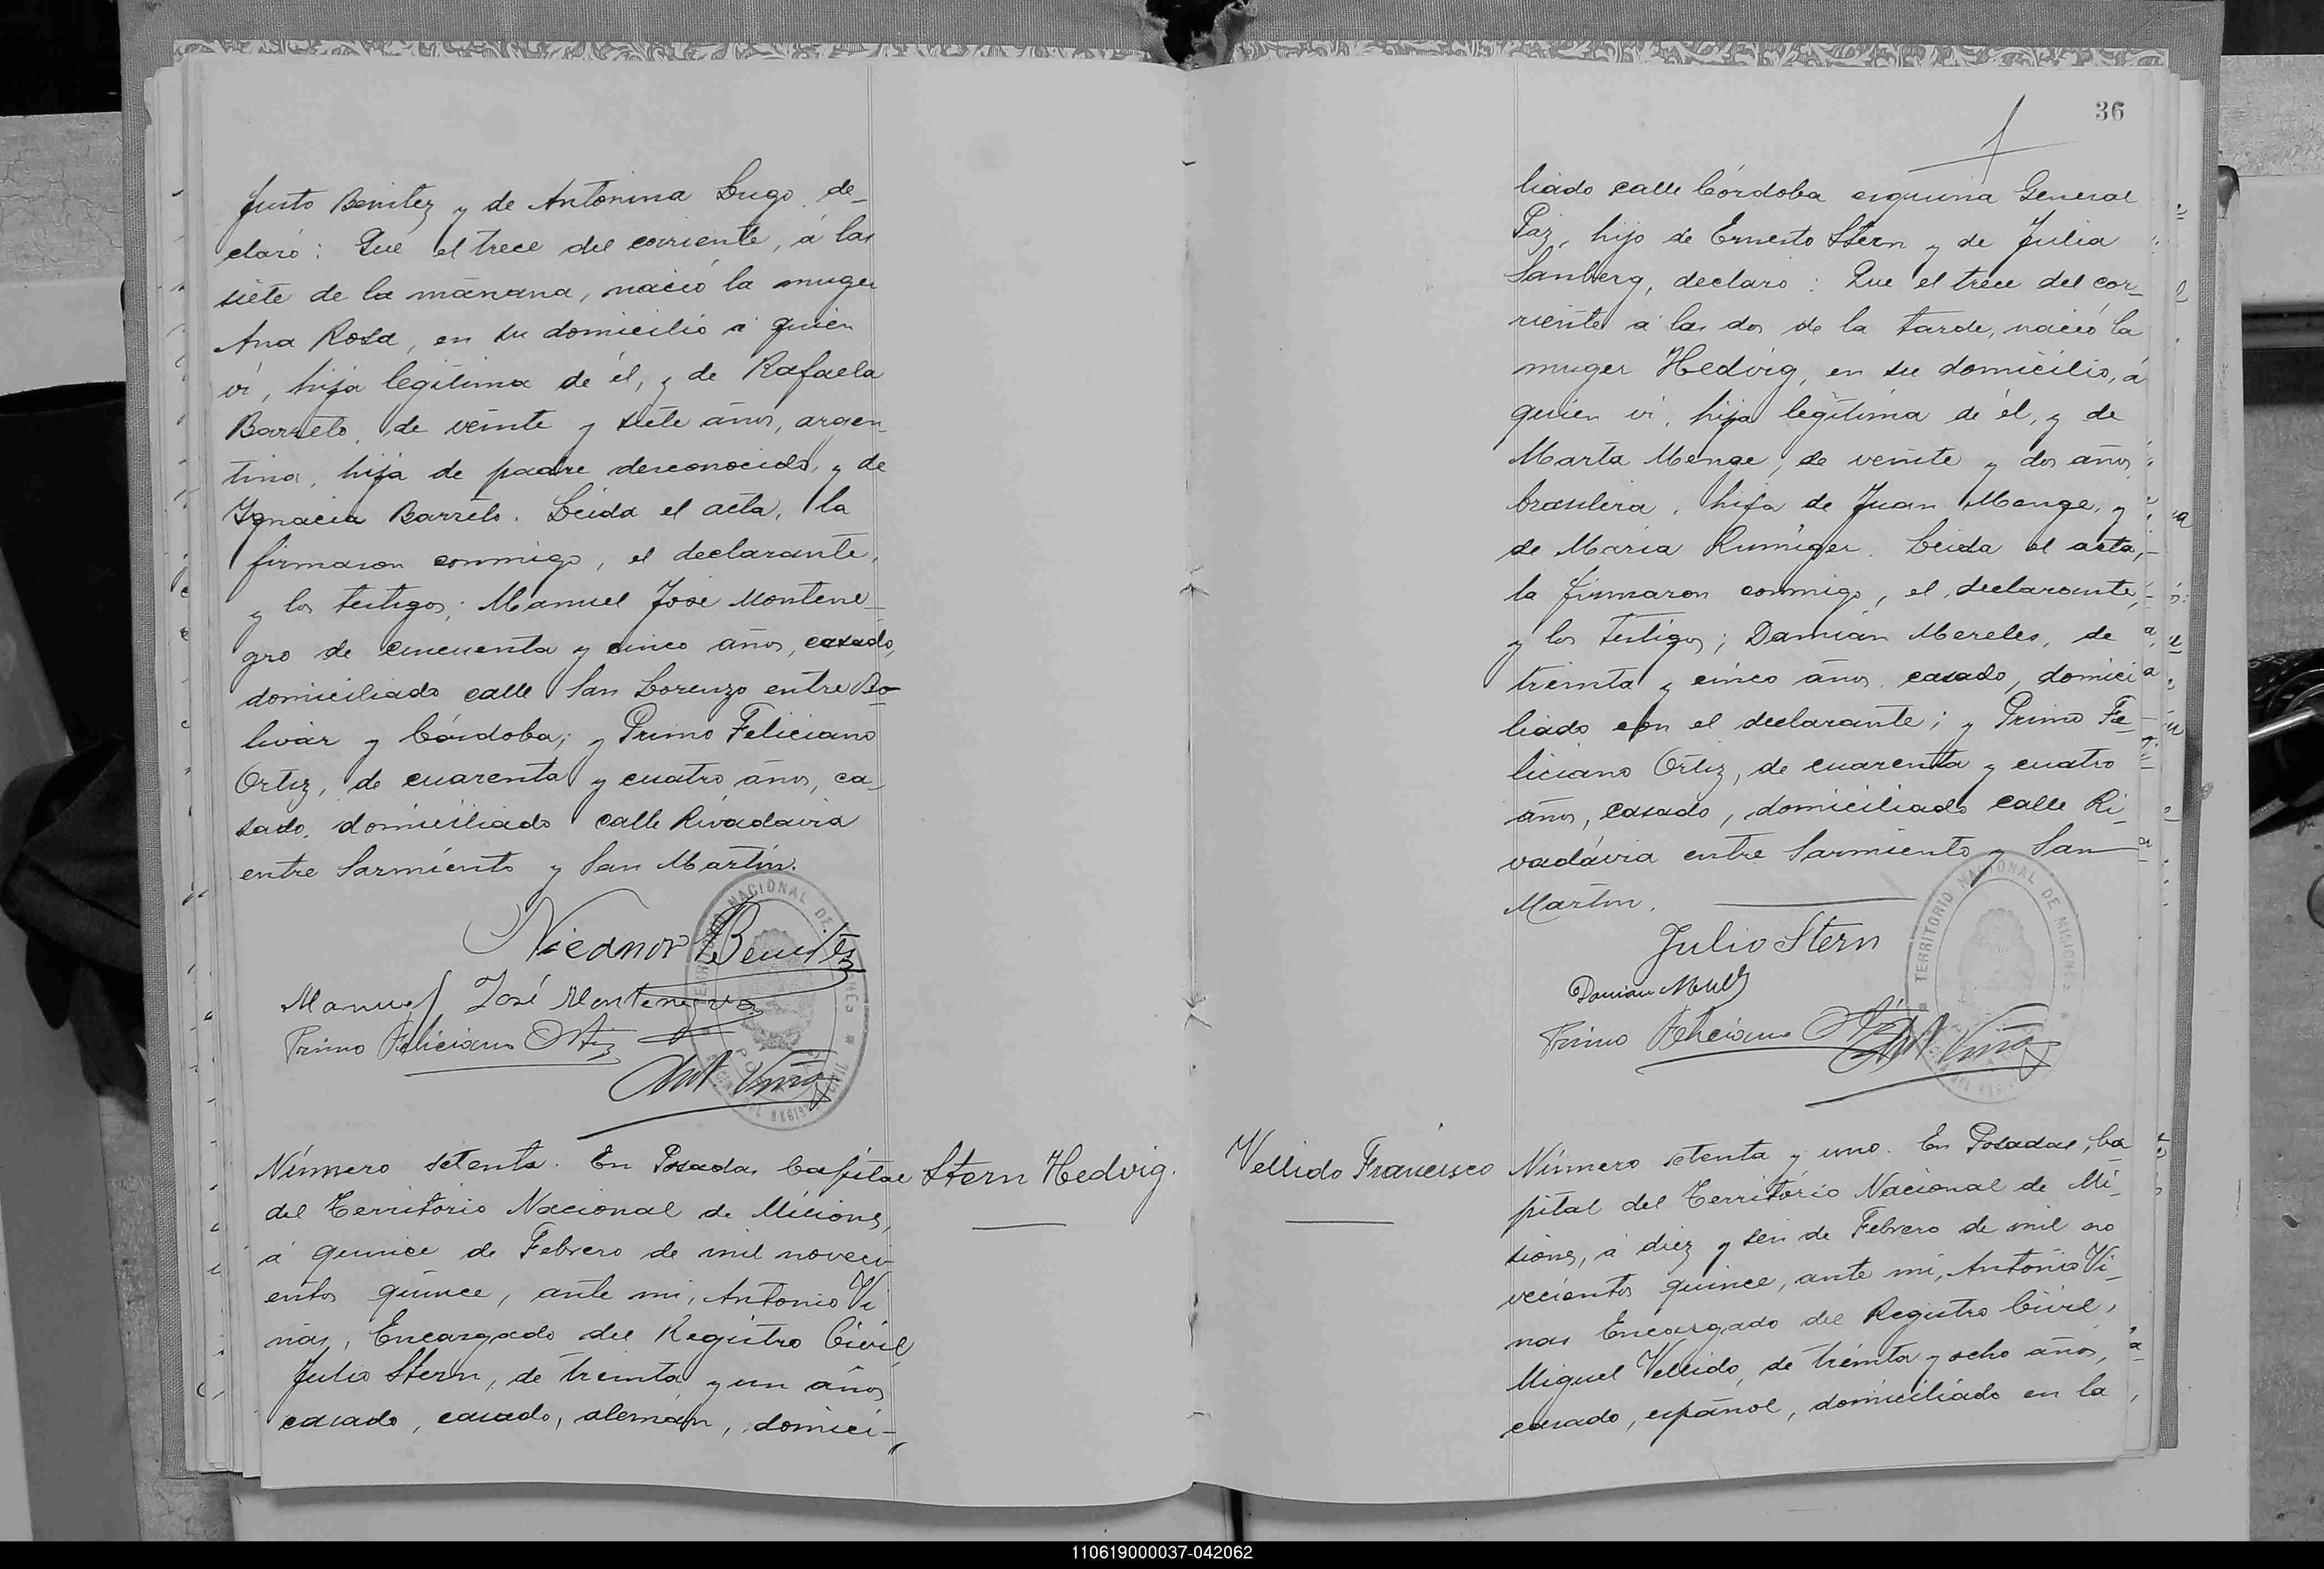 Justo Benitez y de Antonina Lugo, de-
claró: Que el trece del corriente, á las
siete de la mañana, nació la muger
Ana Rosa, en su domicilio á quien
ví, hija legítima de él, y de Rafaela
Barreto, de veinte y siete años, argen-
tina, hija de padre desconocido, y de
Ygnacia Barreto. Leida el acta, la
firmaron conmigo, el declarante,
y los testigos; Manuel José Montene-
gro de cincuenta y cinco años, casado,
domiciliado calle San Lorenzo entre Bo-
livar y Córdoba; y Primo Feliciano
Ortiz, de cuarenta y cuatro años, ca-
sado, domiciliado calle Rivadavia
entre Sarmiento y San Martín.
Nicanor Benitez
Manuel José Montenegro
Primo Feliciano Ortiz
Ant Viñas
Stern Hedvig.
Número setenta. En Posadas Capital
del Territorio Nacional de Miciones,
á quince de Febrero de mil noveci-
entos quince, ante mi, Antonio Vi
ñas, Encargado del Registro Civil,
Julio Stern, de treinta y un años
casado, casado, alemán, domici-
36
liado calle Córdoba esquina General
Paz, hijo de Ernesto Stern y de Julia
Sanberg, declaró: Que el trece del cor-
riente á las dos de la tarde, nació la
muger Hedvig, en su domicilio, á
quien ví, hija legítima de él, y de
Marta Menge, de veinte y dos años
brasilera, hija de Juan Menge, y
de María Rumiger. Leida el acta,
la firmaron conmigo, el declarante,
y los testigos; Damián Mereles, de
treinta y cinco años, casado, domici
liado con el declarante; y Primo Fe-
liciano Ortiz, de cuarenta y cuatro
años, casado, domiciliado calle Ri-
vadavia entre Sarmiento y San
Martin.
TERRITORIO NACIONAL DE MISIONES
Julio Stern
Damian
Primo Feliciano Ortiz
Ant Viñas
Vellido Francisco
Número setenta y uno. En Posadas, Ca
pital del Territorio Nacional de Mi-
siones, á diez y seis de Febrero de mil no
vecientos quince, ante mi, Antonio Vi-
ñas Encargado del Registro Civil,
Miguel Vellido, de treinta y ocho años,
casado, español, domiciliado en la
110619000037-042062